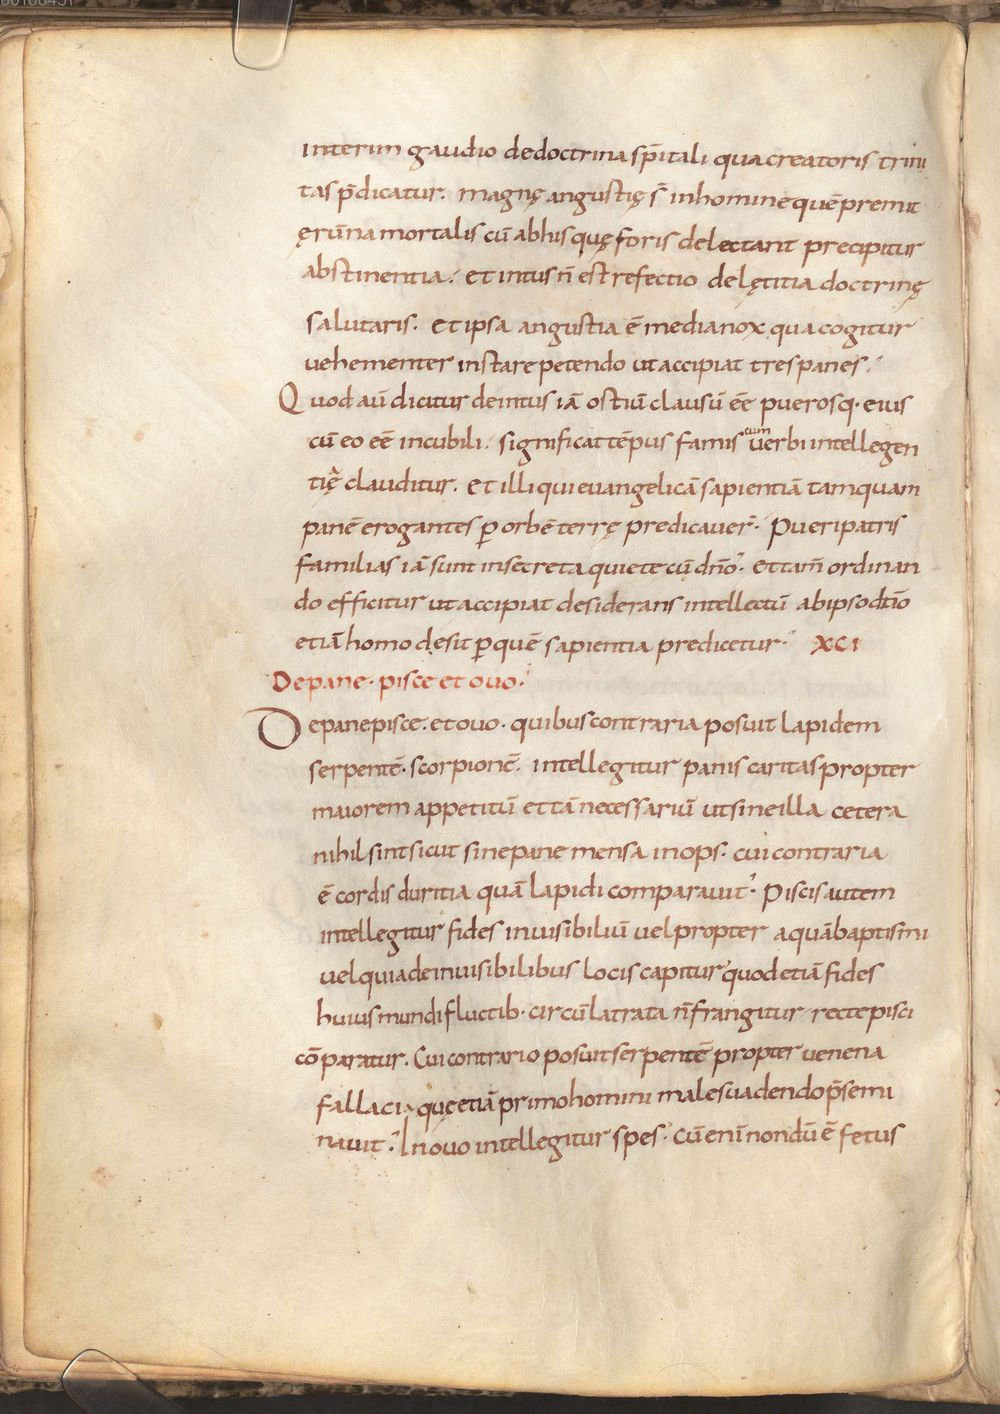 interim gaudio dedoctrina sp̄itali qua creatoris trini
tas p̄dicatur. magnę angustię s̄ inhomine quē premit
ęrūna mortalis cū abhis quę foris delectant precipitur
abstinentia. et intus n̄ est refectio delętitia doctrinę
salutaris. et ipsa angustia ē medianox qua cogitur
vehementer instare petendo ut accipiat tres panes.
Quod aū dicitur deintus iā ostiū clausū eē puerosq· eius
cū eo eē incubili. significat tēpus famis cum uerbi intellegen
tię clauditur. et illi qui euangelicā sapientiā tamquam
panē erogantes p̱ orbē terrę predicauer̄. Pueri patris
familias iā sunt insecreta quiete cū dn̄o. et tam̄ ordinan
do efficitur ut accipiat desiderans intellectū abipso dō
etiā homo desit p̱ quē sapientia predicetur. XCI
De pane· pisce et ouo.
De pane pisce. et ouo. quibus contraria posuit lapidem
serpentē. scorpionē. intellegitur panis caritas propter
maiorem appetitū et tā necessariū ut sine illa cetera
nihil sint sicut sine pane mensa inops. cui contraria
ē cordis duritia quā lapidi comparauit. Piscis autem
intellegitur fides inuisibiliū uel propter aquā baptismi
uel quia deinuisibilibus locis capitur quod etiā fides
huius mundi fluctib· circūlatrata n̄ frangitur recte pisci
cōparatur. Cui contrario posuit serpentē propter uenena
fallacię quę etiā primo homini male suadendo p̄semi
nauit. In ouo intellegitur spes. Cū enī nondū ē fetus